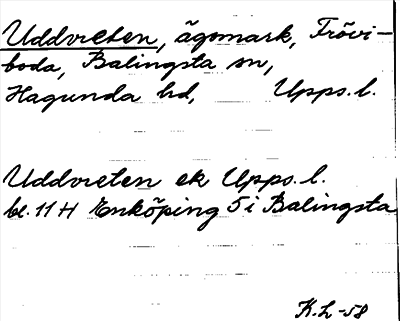 Uddvreten, ägomark, Frövi-
boda, Balingsta sn,
Hagunda hd, Upps. l.
Uddvreten ek Upps. l.
bl. 11 H Enköping 5 i Balingsta
K.L -58